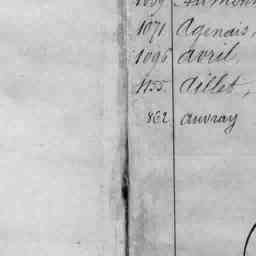 1071 Agenais,
1096 Avril,
1155. Aillet,
862 Auvray